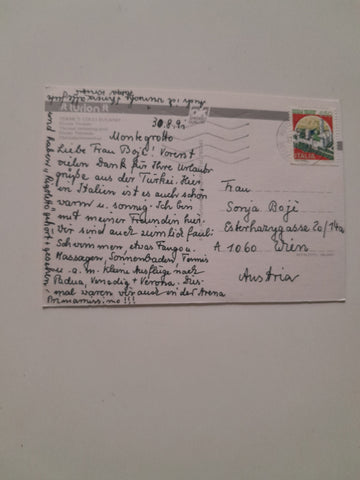 30.8.91
Montegrotto
Liebe Frau Bojè! Vorerst
vielen Dank für Ihre Urlaubs-
grüße aus der Türkei. Hier
in Italien ist es auch schön
warm u. sonnig. Ich bin
mit meiner Freundin hier.
Wir sind auch ziemlich faul:
Schwimmen, etwas Fango u.
Massagen, Sonnenbaden, Tennis
u. a. m. Kleine Ausflüge nach
Padua, Venedig + Verona. Dies-
mal waren wir auch in der Arena
und haben „Rigoletto" gehört + gesehen,
Primamissimo!!!
Frau
Sonja Bojè
Esterhazygasse 20/14a
A 1060 Wien
Austria
ITALIA